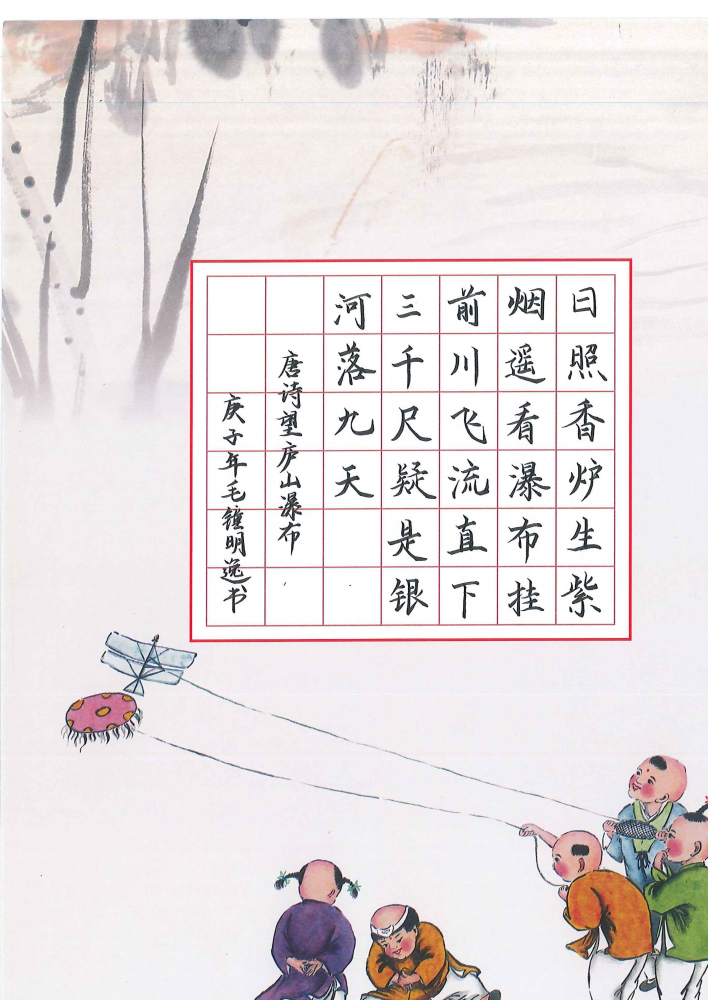 日照香炉生紫
烟遥看瀑布挂
前川飞流直下
三千尺疑是银
河落九天
唐诗望庐山瀑布
庚子年毛锺明逸书